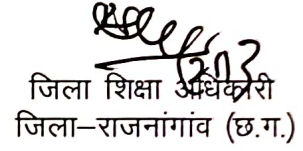 जिला शिक्षा अधिकारी
जिला–राजनांगांव (छ.ग.)